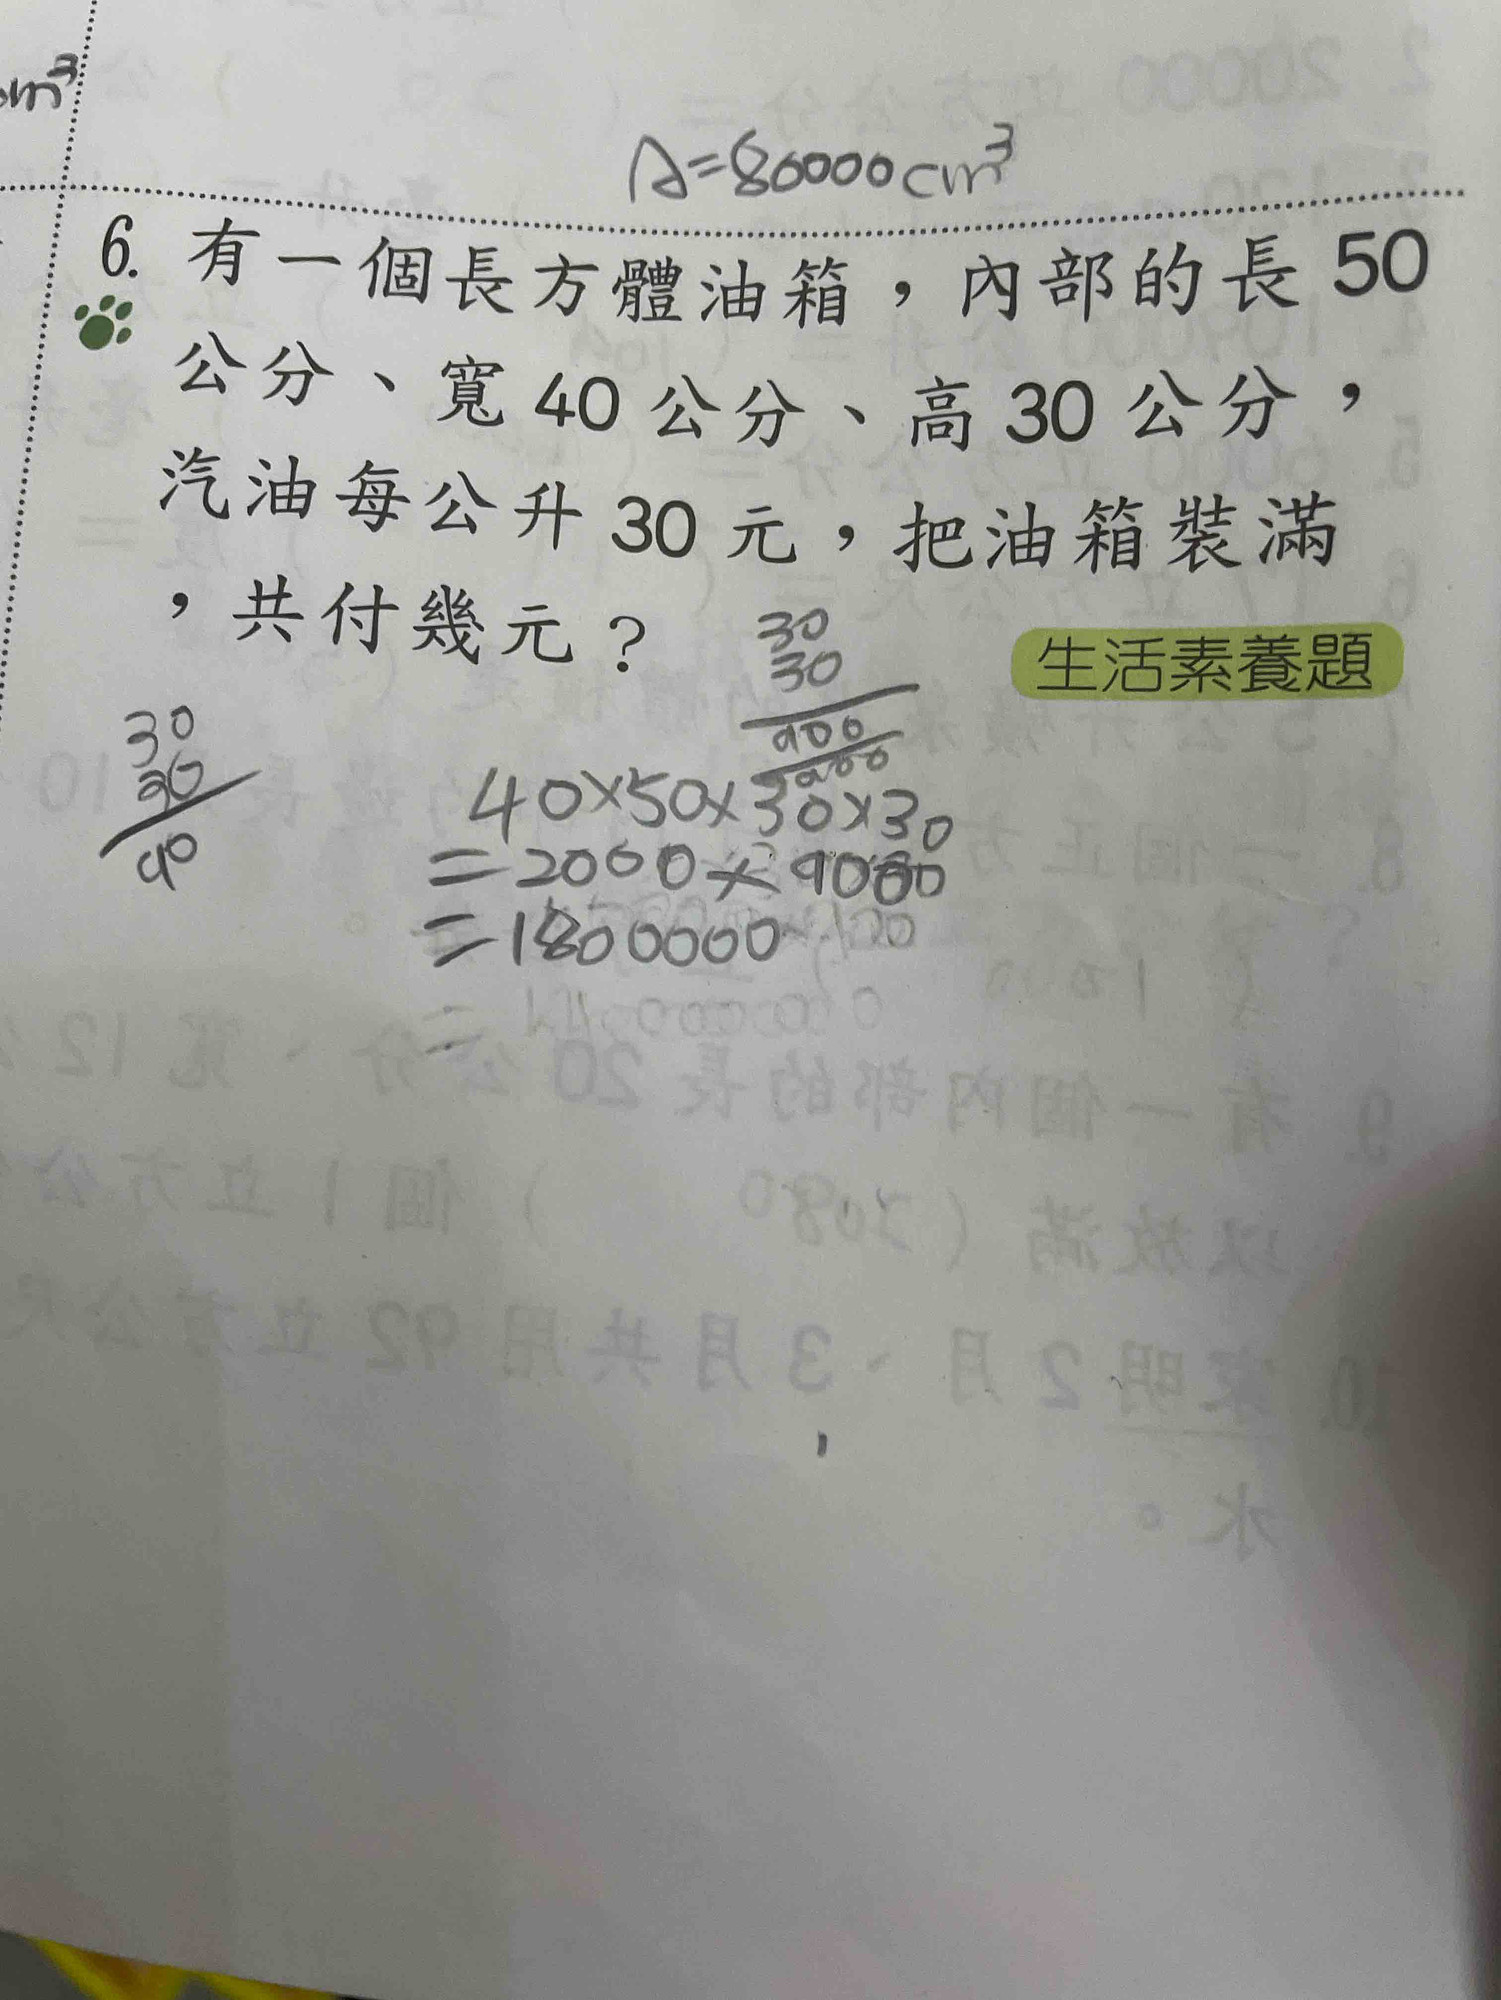 cm³
A=80000cm³
6. 有一個長方體油箱，內部的長 50
公分、寬 40 公分、高 30 公分，
汽油每公升 30 元，把油箱裝滿
，共付幾元？
生活素養題
30
30
900
30
30
90
40×50×30×30
=2000×900
=1800000